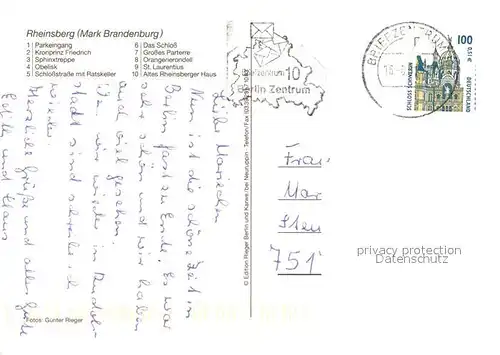 Rheinsberg (Mark Brandenburg)
1 Parkeingang
2 Kronprinz Friedrich
3 Sphinxtreppe
4 Obelisk
5 Schloßstraße mit Ratskeller
6 Das Schloß
7 Großes Parterre
8 Orangenierondell
9 St. Laurentius
10 Altes Rheinsberger Haus
Liebe Mariechen
Nun ist die schöne Zeit in
Berlin fast zu Ende. Es war
sehr schön und wir haben
auch viel gesehen.
wir wieder in
stadt sind schreibe ich
wieder.
Herzliche Grüße und alles Gute
und Klaus
Fotos: Günter Rieger
© Edition Rieger Berlin und Karwe/bei Neuruppin · Telefon/Fax
Briefzentrum 10
Berlin Zentrum
BRIEFZENTRUM
100
0,51 €
SCHLOSS SCHWERIN
DEUTSCHLAND
Frau
Mar
Sten
751
privacy protection
Datenschutz